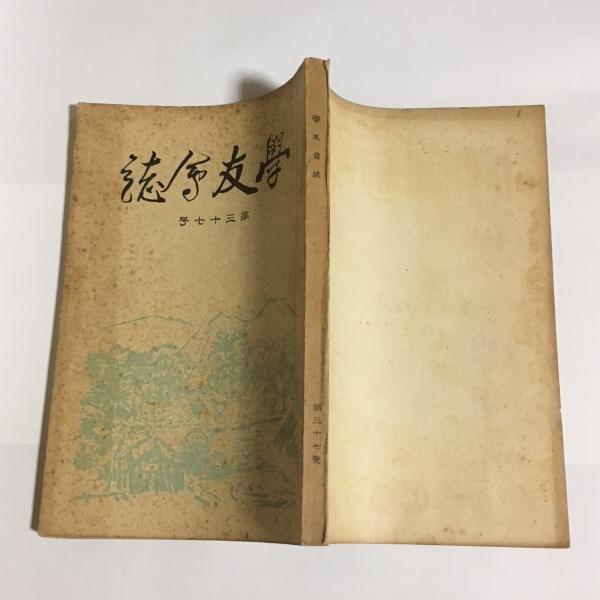 學友會誌
第三十七号
學友會誌
第三十七號